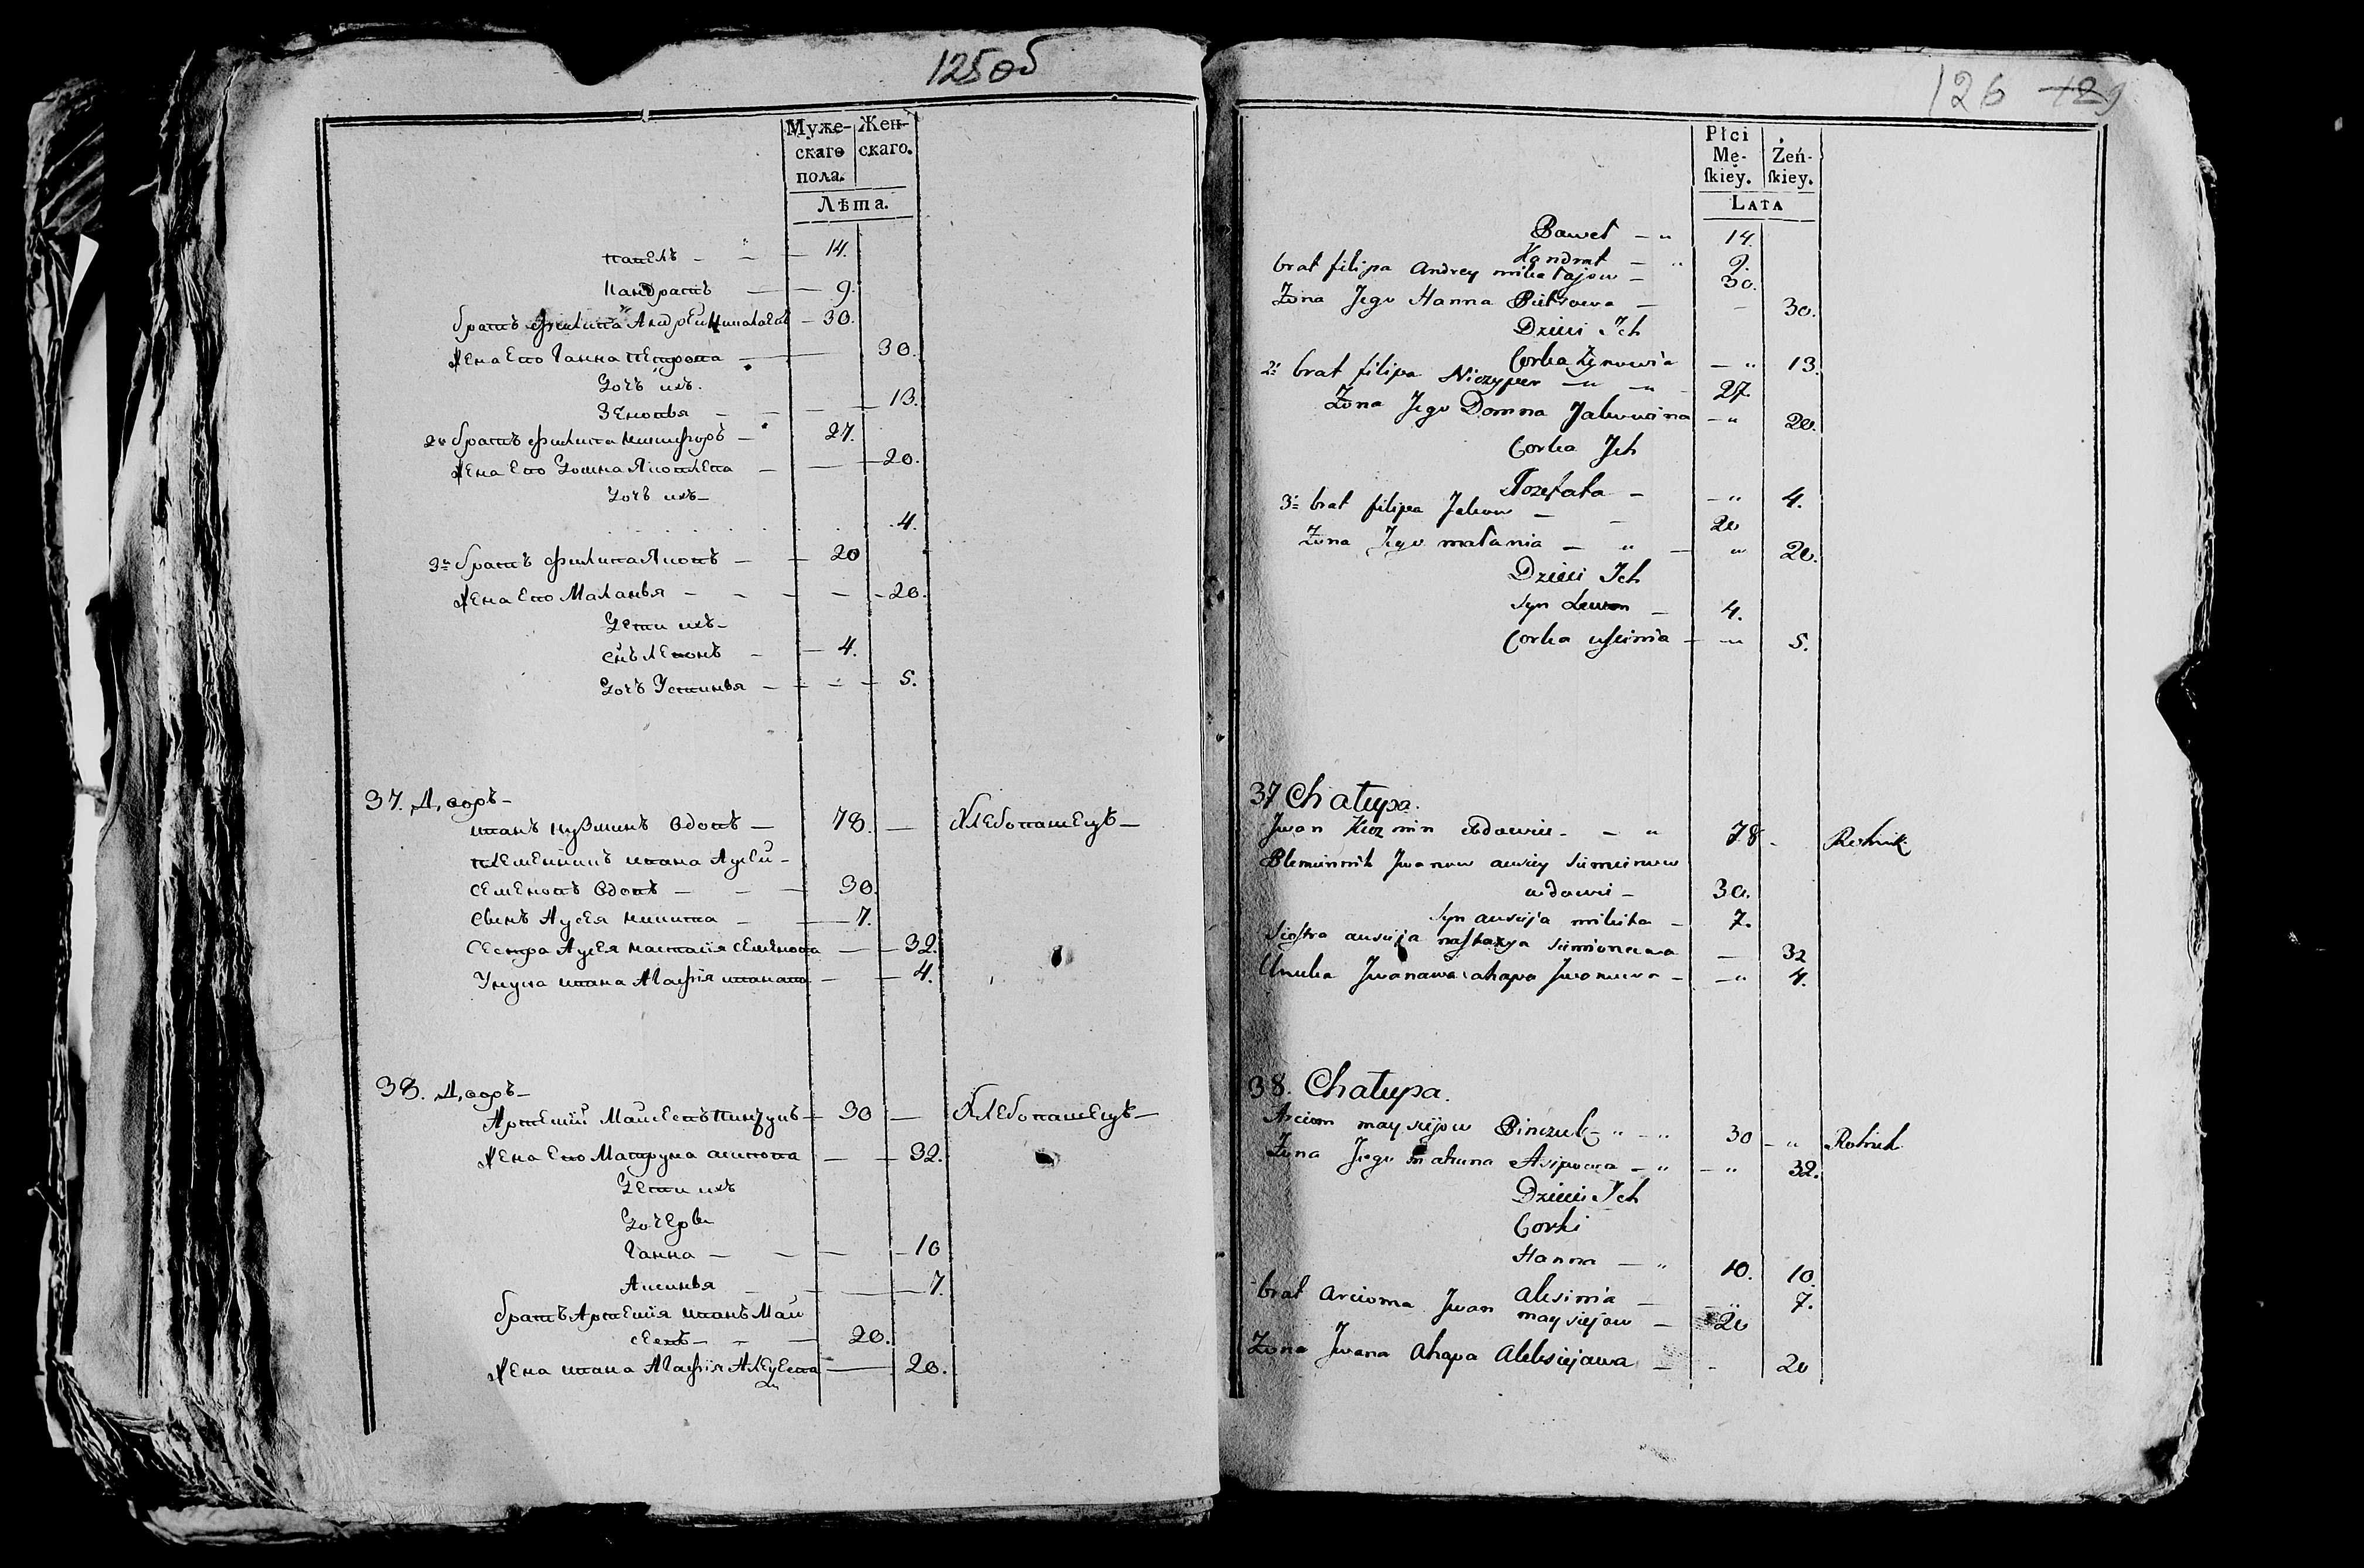 125об
Муже-
скаго
пола.
Жен-
скаго.
Лѣта.
павелъ - - - 14.
Кандратъ - - 9.
братъ филипа Андрей Николаевъ - 30.
жена Ево Ганна пЕтрова - 30.
Дочъ ихъ.
Зѣновья - - - 13.
2й братъ филипа никифоръ - 27.
жена Ево Домна Яковлева - - 20.
Дочъ ихъ -
. . . . 4.
3й братъ филипа Яковъ - - 20
жена Ево Маланья - - - - 20.
Дети ихъ -
снъ Левонъ - - 4.
Дочъ Устинья - - - - 5.
37. Дворъ -
иванъ кузминъ вдовъ - 78. - Хлебопашецъ -
племенникъ ивана Аусей -
семеновъ вдовъ - - - 30.
сынъ Аусея никита - - 7.
сестра Аусея настасія семенова - - 32.
Унука ивана Агафія иванова - - 4.
38. Дворъ -
Артемій Майсеевъ Пинчукъ - 30 - Хлебопашецъ -
жена Ево Матруна асипова - - 32.
Дети ихъ
Дочеры
Ганна - - - - 10
Аксинья - - - 7.
братъ Артемія иванъ Май
сеевъ - - - 20.
жена ивана Агафія Алексеева - 20.
126 129
Płci
Mę-
ſkiey.
Żeń-
ſkiey.
LATA
Paweł - " 14.
Kondrat - " 9.
brat filipa Andrey mikałajow - 30.
Żona Jego Hanna Pietrowa - - 30.
Dzieci Ich
Corka Zynowia - " 13.
2i brat filipa Niczyper - " - " - 27.
Żona Jego Domna Jakowina - " 20.
Corka Ich
Jozefata - - " 4.
3i brat filipa Jakow - - 20
Żona Jego małania - " - " 20.
Dzieci Ich
Syn Lewon - 4.
Corka uſcinia - - " 5.
37 Chałupa.
Jwan Kuzmin wdowiec - - " 78 - Rolnik
Plemiennik Jwanow awsiey siemionow
wdowi - 30.
Syn awsieja mikita - 7.
Siostra awsieja nastazya siemionowa - 32
Unuka Jwanawa ahapa Jwanowa - - " 4.
38. Chałupa.
Arciom maysiejow Pinczuk - " - " 30 - " Rolnik
Żona Jego matruna Asipowa - " - " 32.
Dzieci Ich
Corki
Hanna - " 10. 10.
Aksinia - - " 7.
brat Arcioma Jwan maysiejow - 20
Żona Jwana Ahapa Aleksiejawa - - 20